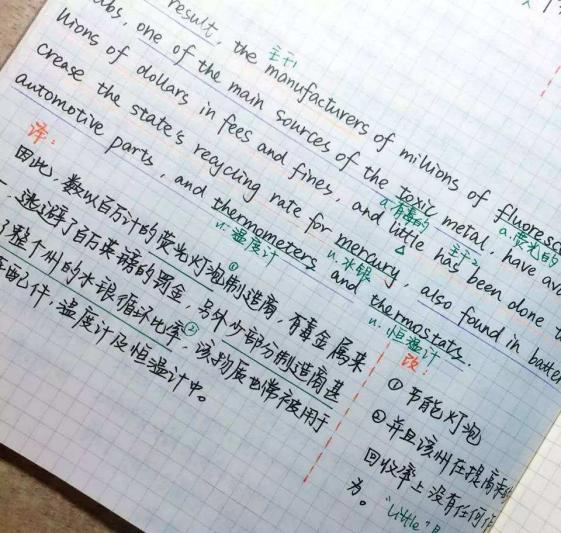 result, the manufacturers of millions of fluoresc
主干
bs, one of the main sources of the toxic metal, have avo
a.有毒的
a.荧光的
llions of dollars in fees and fines, and little has been done t
主干
crease the state's recycling rate for mercury, also found in batter
n.水银
automotive parts, and thermometers and thermostats.
n.温度计
n.恒温计
译:
因此,数以百万计的荧光灯泡制造商,有毒金属来
①
逃避了百万英镑的罚金,另外少部分制造商甚
了整个州的水银循环比率,②该物质也常被用于
配件,温度计及恒温计中。
改:
①节能灯泡
②并且该州在提高
回收率上没有任何作
为。
"little"